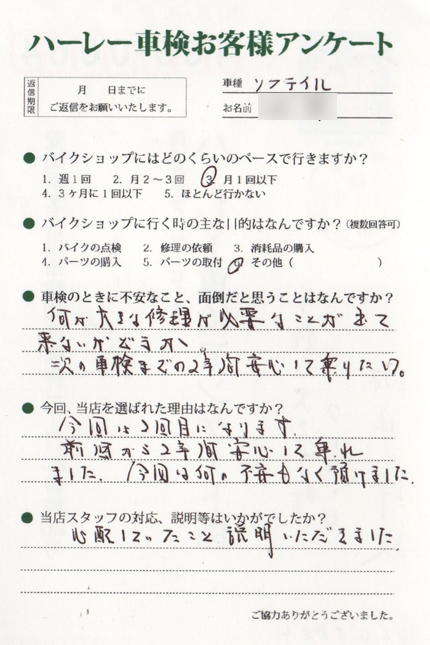 ハーレー車検お客様アンケート
返信期限
月 日までに
ご返信をお願いいたします。
車種 ソフテイル
お名前
● バイクショップにはどのくらいのペースで行きますか？
1. 週1回 2. 月2〜3回 3. 月1回以下
4. 3ヶ月に1回以下 5. ほとんど行かない
● バイクショップに行く時の主な目的はなんですか？（複数回答可）
1. バイクの点検 2. 修理の依頼 3. 消耗品の購入
4. パーツの購入 5. パーツの取付 6. その他（ ）
● 車検のときに不安なこと、面倒だと思うことはなんですか？
何か大きな修理が必要なことが出て
来ないかどうか
次の車検までの2年間安心して乗りたい。
● 今回、当店を選ばれた理由はなんですか？
今回は2回目になります
前回から2年間安心して乗れ
ました。今回は何の不安もなく預けました。
● 当店スタッフの対応、説明等はいかがでしたか？
心配していたこと説明いただきました。
ご協力ありがとうございました。